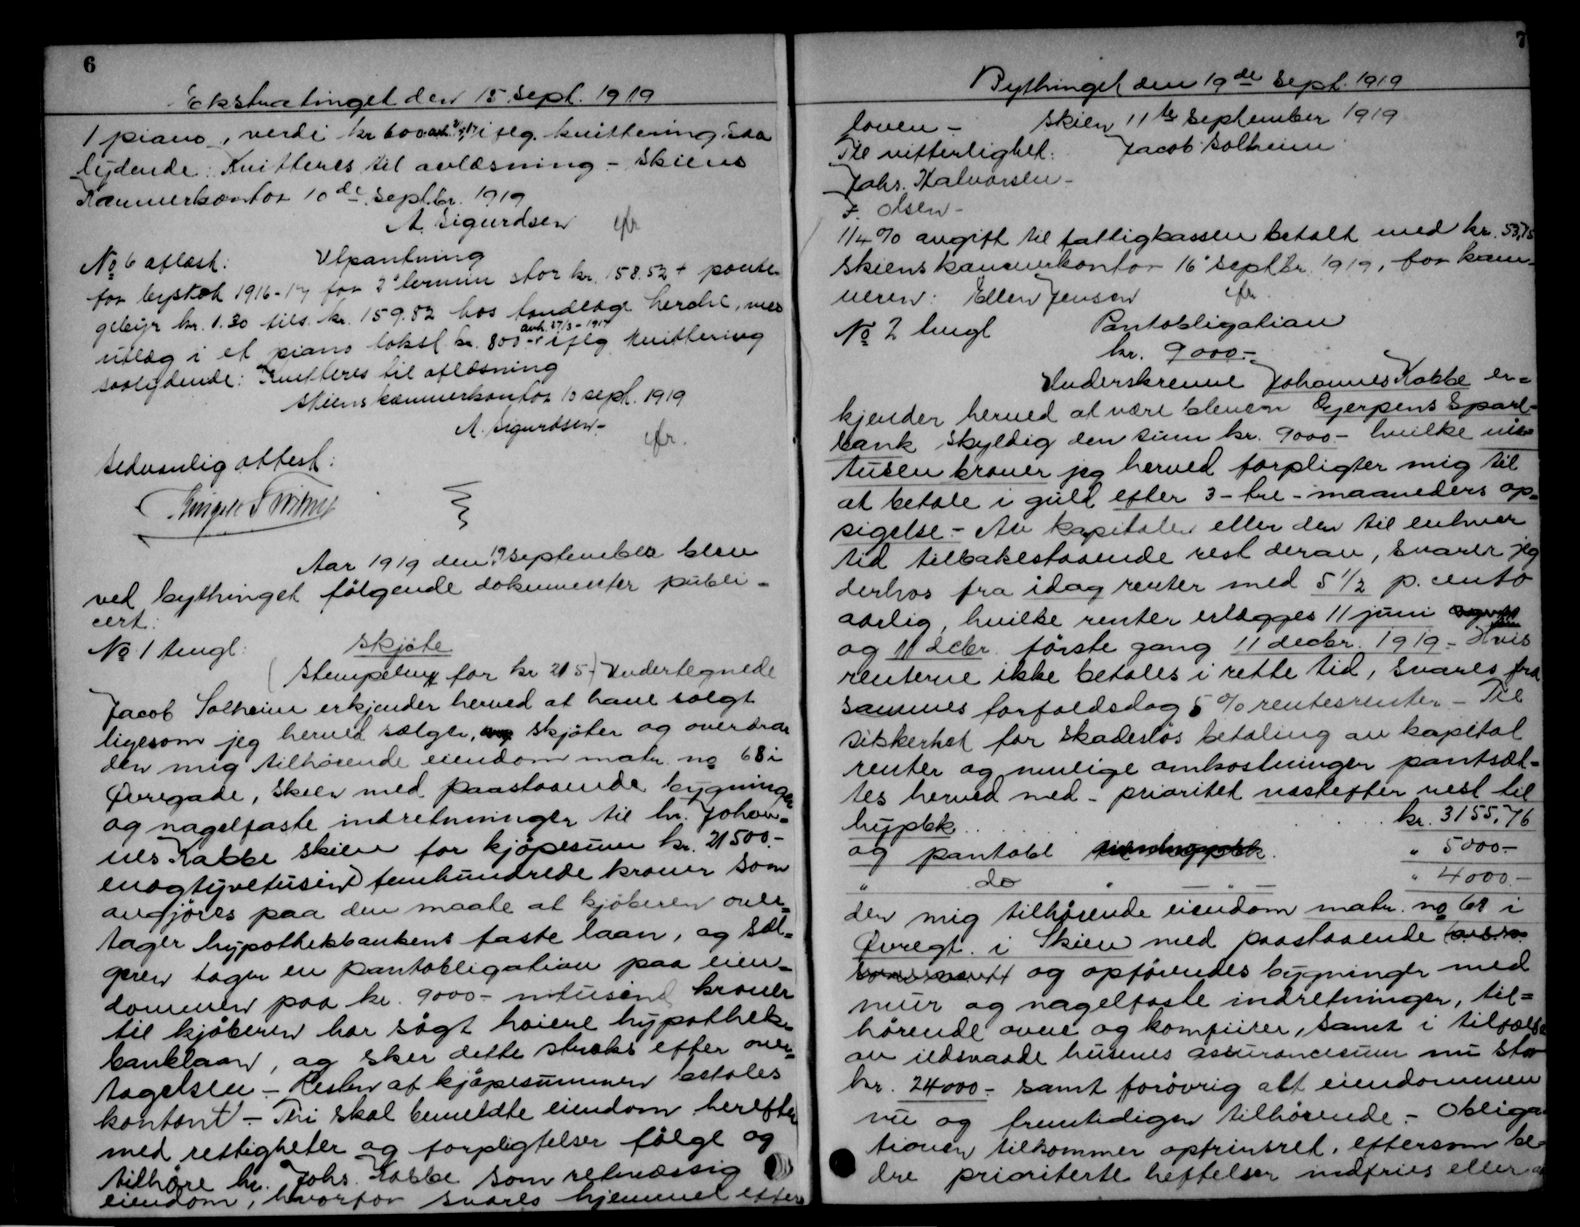 6
Ekstratinget den 15 Sept. 1919
1 piano, verdi kr 600 iflg. kvittering saa
lydende: Kvitteres til avlæsning - Skiens
Kæmnerkontor 10de septbr. 1919
A. Sigurdsen
No 6 aflæst: Utpantning
for byskat 1916-17 for 2' termin stor kr. 158.52 + pante-
gebyr kr. 1.30 tils. kr. 159.82 hos tandlæge Herdel, med
avh. 27/3-1917
utlæg i et piano takst kr. 800 - ifølg kvittering
saalydende: Kvitteres til aflæsning
Skiens kæmnerkontor 10 sept. 1919
A. Sigurdsen -
Sedvanlig attest:
Aar 1919 den 19 september blev
ved bythinget følgende dokumenter publi-
cert:
No 1 tingl: Skjøte
(Stemplet for kr 215 -) Undertegnede
Jacob Solheim erkjender herved at have solgt
ligesom jeg herved sælger, skjøter og overdrar
den mig tilhørende eiendom matr. no 68 i
Øvregade, Skien med paastaaende bygninger
og nagelfaste indretninger til hr. Johan-
nes Kabbe Skien for kjøpesum kr. 21500.-
enogtyvetusind femhundrede kroner som
avgjøres paa den maate at kjøberen over-
tager hypothekbankens faste laan, og sæl-
geren tager en pantobligation paa eien-
dommen paa kr. 9000 - nitusind kroner
til kjøberen har søgt høiere hypothek-
banklaan, og sker dette straks efter over-
tagelsen - Resten af kjøpesummen betales
kontant - Thi skal bemeldte eiendom herefter
med rettigheter og forpligtelser følge og
tilhøre hr. Johs. Kabbe som retmæssig
eiendom, hvorfor svares hjemmel efter
7
Bythinget den 19de Sept. 1919
loven - Skien 11te September 1919
Til vitterlighet: Jacob Solheim
Johs. Halvorsen -
F. Olsen -
1/4 % avgift til fattigkassen betalt med kr. 53,75
Skiens kæmnerkontor 16' septbr. 1919, for kæm-
neren: Ellen Jensen
No 2 tingl Pantobligation
kr. 9000.-
Underskrevne Johannes Kabbe er-
kjender herved at være bleven Gjerpens Spare-
bank skyldig den sum kr. 9000.- hvilke ni
tusen kroner jeg herved forpligter mig til
at betale i guld efter 3 - tre - maaneders op-
sigelse - Av kapitalen eller den til enhver
tid tilbakestaaende rest derav, svarer jeg
derhos fra idag renter med 5 1/2 p. cento
aarlig, hvilke renter erlægges 11 juni
og 11 decbr. første gang 11 decbr. 1919 - Hvis
renterne ikke betales i rette tid, svares fra
sammes forfaldsdag 5 % rentesrenter - Til
sikkerhet for skadesløs betaling av kapital
renter og mulige omkostninger pantsæt-
tes herved med - prioritet næstefter rest til
hypbk. . . . . kr. 3155,76
og pantobl . " 5000.-
" do " — " — " 4000.-
den mig tilhørende eiendom matr. no 68 i
Øvregt. i Skien med paastaaende
og opførendes bygninger med
mur og nagelfaste indretninger, til-
hørende ovne og komfurer, samt i tilfælde
av ildsvaade husenes assurancesum nu stor
kr. 24000.- samt forøvrig alt eiendommen
nu og fremtidigen tilhørende. - Obliga
tionen tilkommer optrinsret, eftersom be-
dre prioriterte heftelser indfries eller